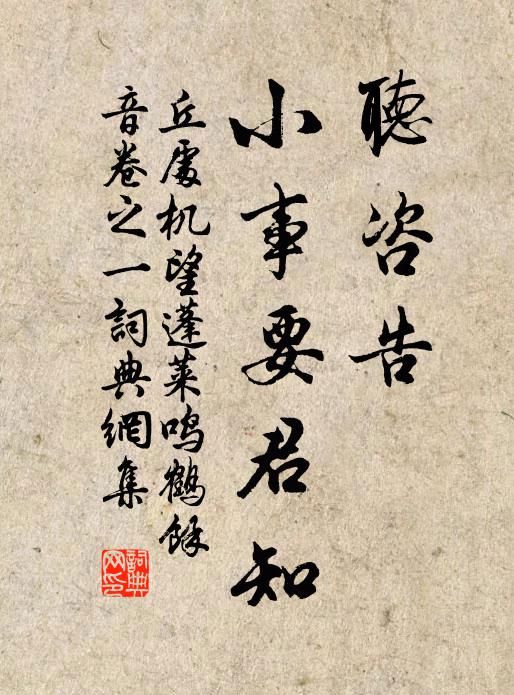 聽咨告
小事要君知
丘處机望蓬莱鳴鶴餘
音卷之一詞典網集
詞典
网印